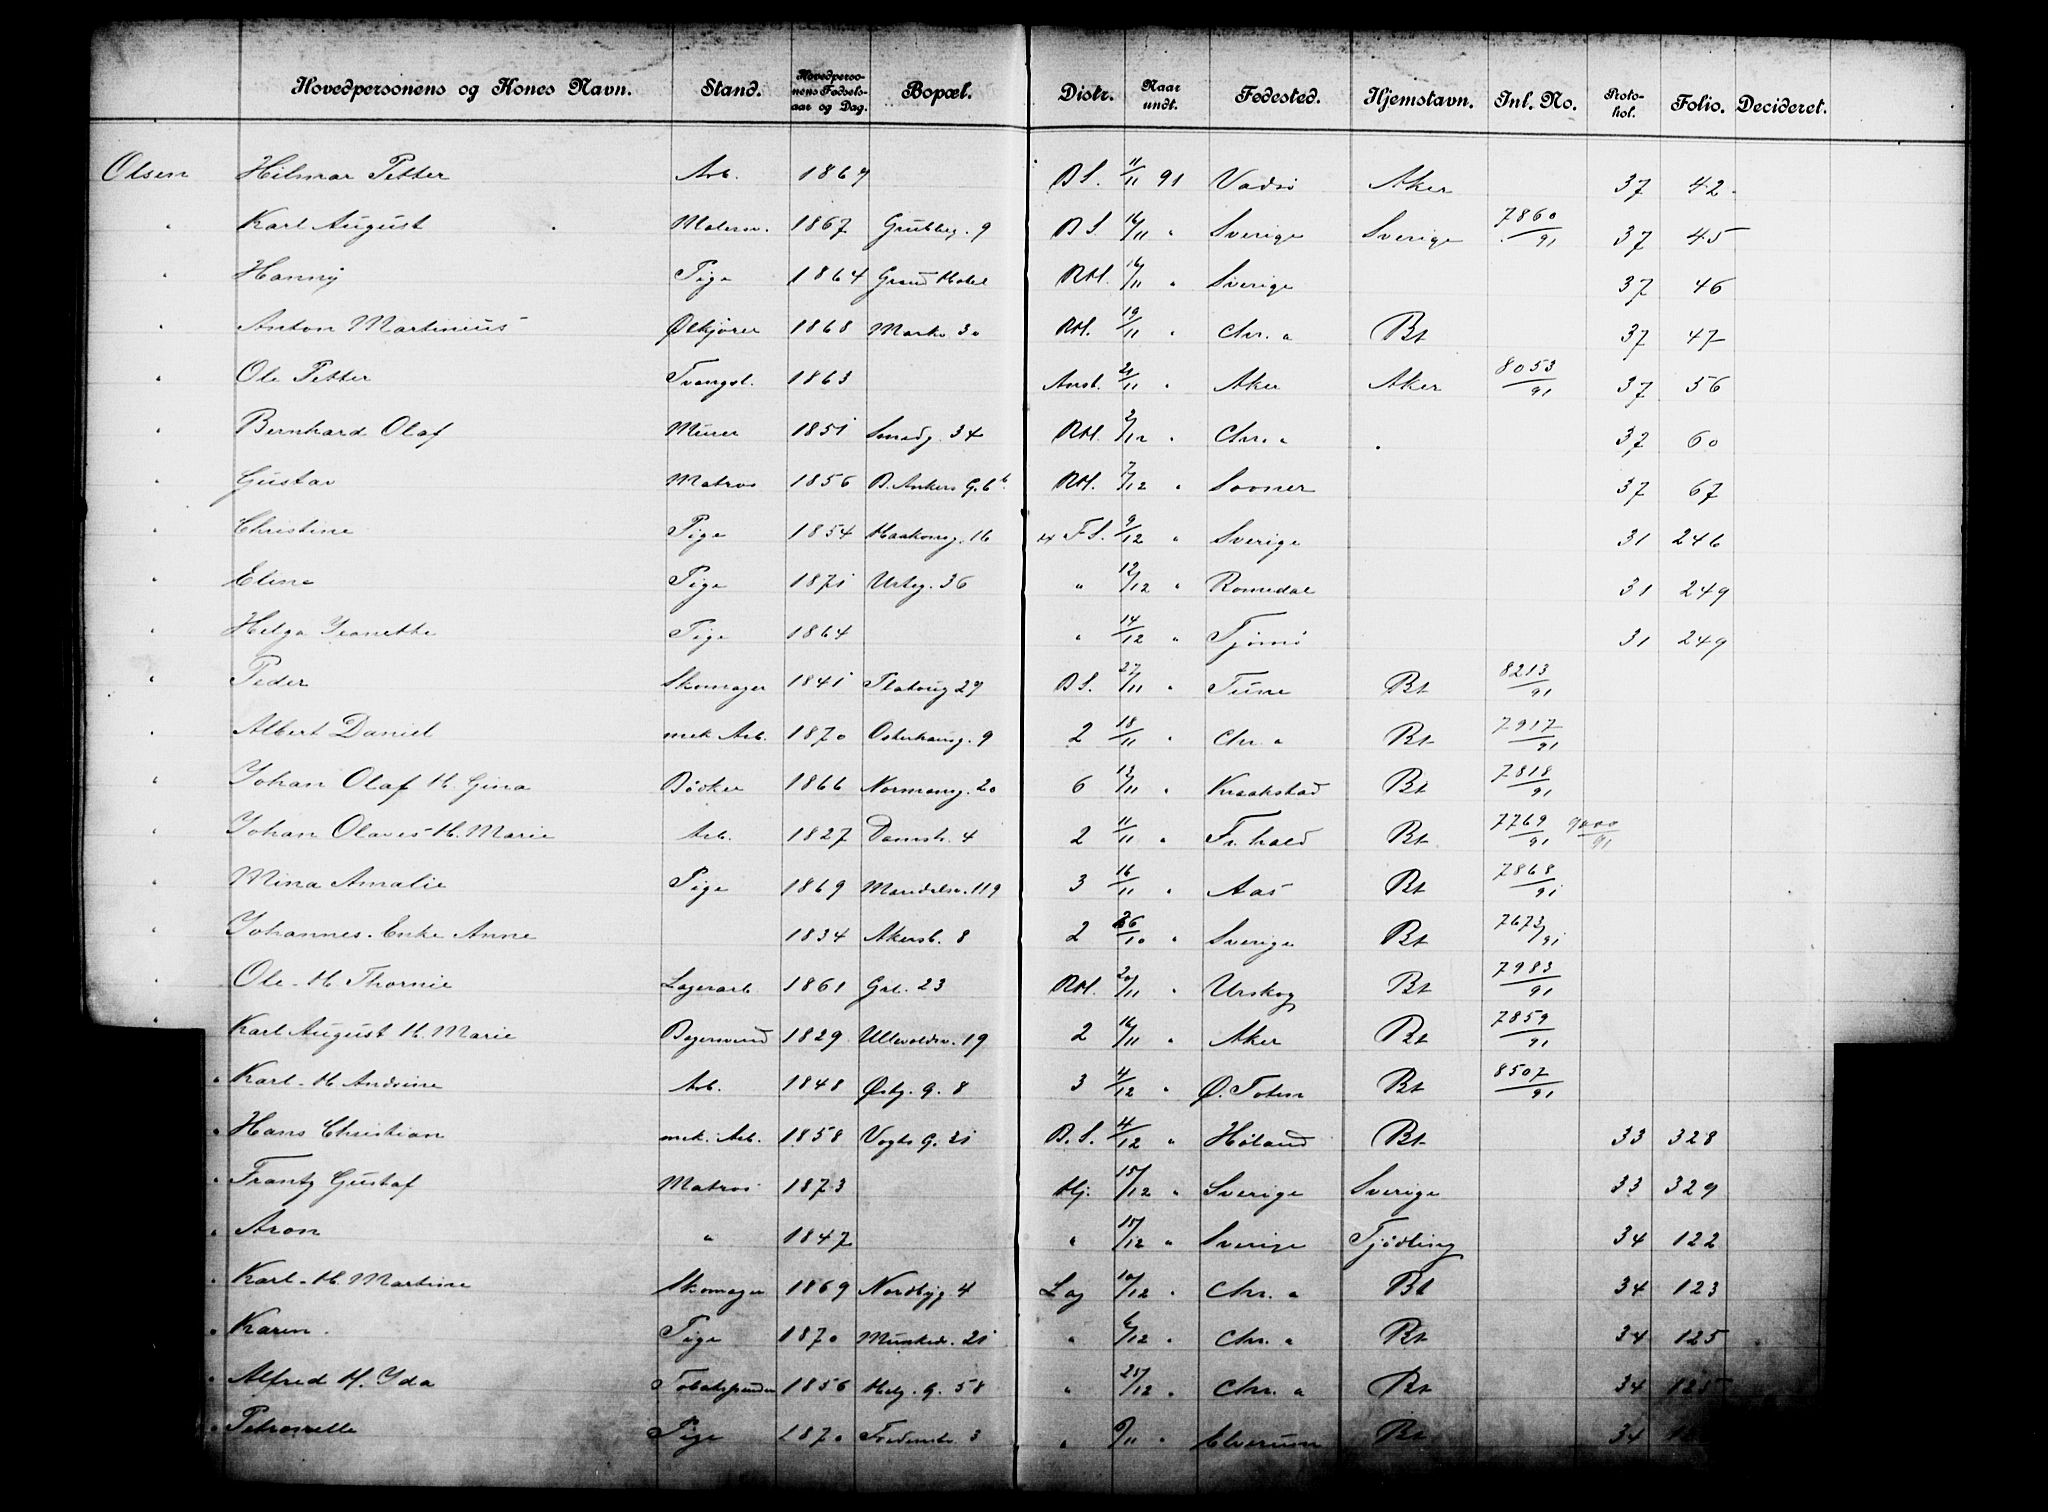 Hovedpersonens og Kones Navn. Stand. Hovedpersonens Fødselsaar og Dag. Bopæl. Distr. Naar undt. Fødested. Hjemstavn. Inl. No. Protokol. Folio. Decideret.
Olsen Hilmar Petter Arb. 1867 B S. 11/11 91 Vadsö Aker 37 42
" Karl August Malersv. 1867 Grubbeg. 9 B S. 16/11 " Sverige Sverige 7860/91 37 45
" Hanny Pige 1864 Grand Hotel RM. 16/11 " Sverige 37 46
" Anton Martinius Ølkjører 1868 Markv 30 RM. 19/11 " Chr. a Bt 37 47
" Ole Petter Tvangsl. 1863 21/11 " Aker Aker 8053/91 37 56
" Bernhard Olaf Murer 1851 34 RM. 2/12 " Chr. a 37 60
" Gustav Matros 1856 B. Ankers G. 6 b. RM. 7/12 " 37 67
" Christine Pige 1854 Haakonsg. 16 F S. 9/12 " Sverige 31 246
" Eline Pige 1871 Urteg. 36 " 12/12 " Romedal 31 249
" Helga Jeanette Pige 1864 " 14/12 " Tjömö 31 249
" Peder Skomager 1841 29 B S. 27/11 " Tune Bt 8213/91
" Albert Daniel mek Arb. 1870 Osterhausg. 9 2 18/11 " Chr. a Bt 7917/91
" Johan Olaf H. Gina Bödker 1866 Normansg. 20 6 13/11 " Kraakstad Bt 7818/91
" Johan Olaves H. Marie Arb. 1827 Damstr. 4 2 11/11 " Fr. hald Bt 7769/91 9000/91
" Mina Amalie Pige 1869 Maridalsv. 119 3 16/11 " Aas Bt 7868/91
" Johannes. Enke Anne 1834 Akersb. 8 2 26/10 " Sverige Bt 7673/91
" Ole - H Thornie Lagerarb. 1861 Grl. 23 RM. 20/11 " Urskog Bt 7983/91
" Karl August H. Marie Bogersvend 1829 Ullevoldsv. 19 2 16/11 " Aker Bt 7859/91
" Karl - H Andrine Arb. 1848 Østg. g. 8 3 4/12 " Ø. Toten Bt 8507/91
" Hans Christian mek. Arb. 1858 Vogts G. 21 B. S. 4/12 " Höland Bt 33 328
" Frantz Gustaf Matros 1873 Hj. 15/12 " Sverige Sverige 33 329
" Aron " 1847 " 15/12 " Sverige Tjödling 34 122
" Karl - H. Martine Skomager 1869 Nordbyg 4 Lag 10/12 " Chr. a Bt 34 123
" Karen. Pige 1870 Munked. 21 " 6/12 " Chr. a Bt 34 125
" Alfred H. Yda Tobakspinder 1856 Helg. G. 58 " 21/12 " Chr. a Bt 34 125
" Petronelle Pige 1870 3 " /11 " Elverum Bt 34